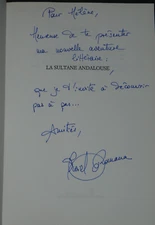 Pour Hélène,
Heureuse de te présenter
ma nouvelle aventure
littéraire :
LA SULTANE ANDALOUSE
que je t'invite à découvrir
pas à pas...
Amitiés,